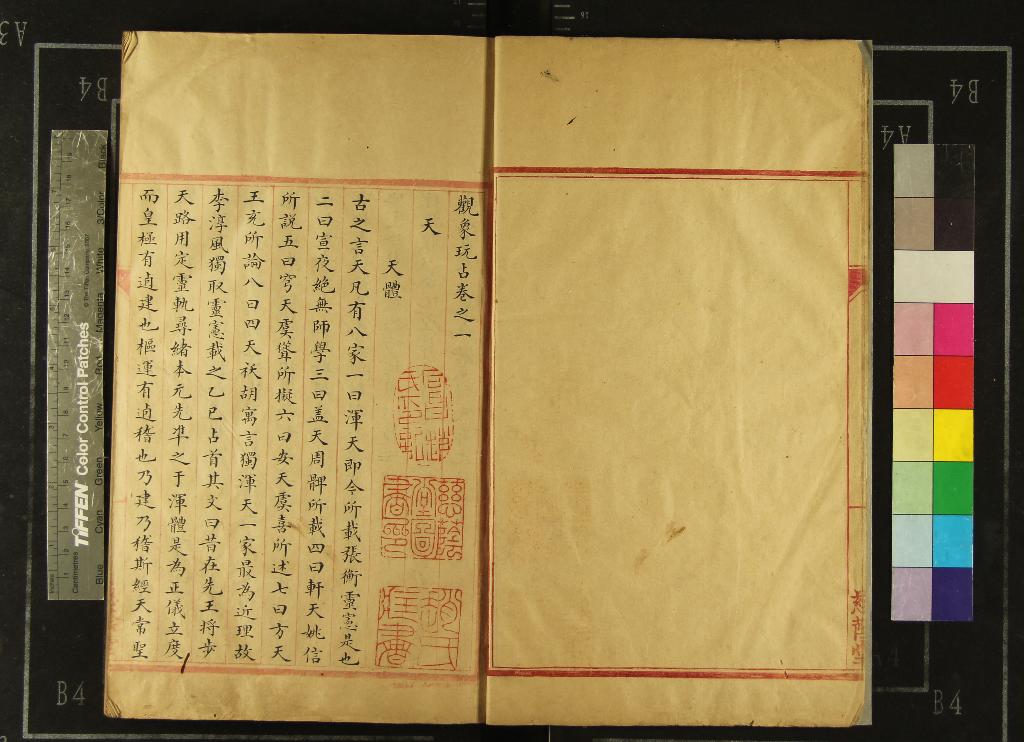 觀象玩占卷之一
天
天體
古之言天凡有八家一曰渾天即今所載張衡靈憲是也
二曰宣夜絶無師學三曰盖天周髀所載四曰軒天姚信
所說五曰穹天虞聳所擬六曰安天虞喜所述七曰方天
王充所論八曰四天祆胡寓言獨渾天一家最為近理故
李淳風獨取靈憲載之乙巳占首其文曰昔在先王将步
天路用定靈軌尋緒本元先凖之于渾體是為正儀立度
而皇極有逌建也樞運有逌稽也乃建乃稽斯經天常聖
慈蔭堂圖書印
趙氏
書
慈蔭堂
TIFFEN Color Control Patches
Centimetres
Inches
Blue
Cyan
Green
Yellow
Red
Magenta
White
3/Color
Black
A3
B4
B4
A4
B4
B4
A4